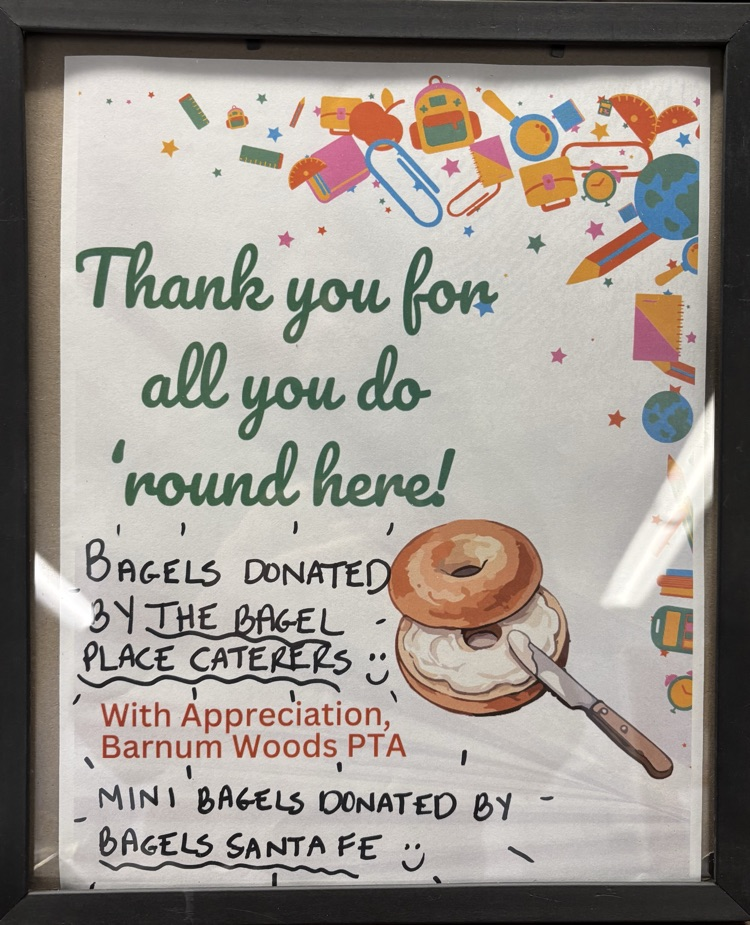 Thank you for
all you do
'round here!
BAGELS DONATED
BY THE BAGEL
PLACE CATERERS :)
With Appreciation,
Barnum Woods PTA
MINI BAGELS DONATED BY
BAGELS SANTA FE :)